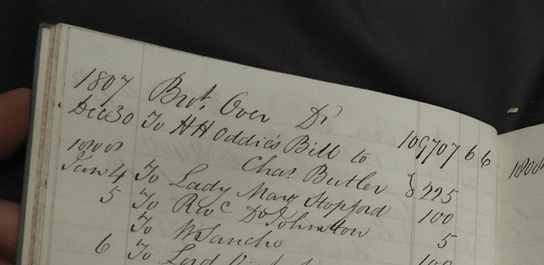 1807 Brot. Over Dr. 109707 6 6
Dec 30 To H H Oddie's Bill to
Chas. Butler } 225
1808
Jan 4 To Lady Mary Stopford 100
5 To Revd Dr Johnston 5
To W Sancho
6 To Lord
1808